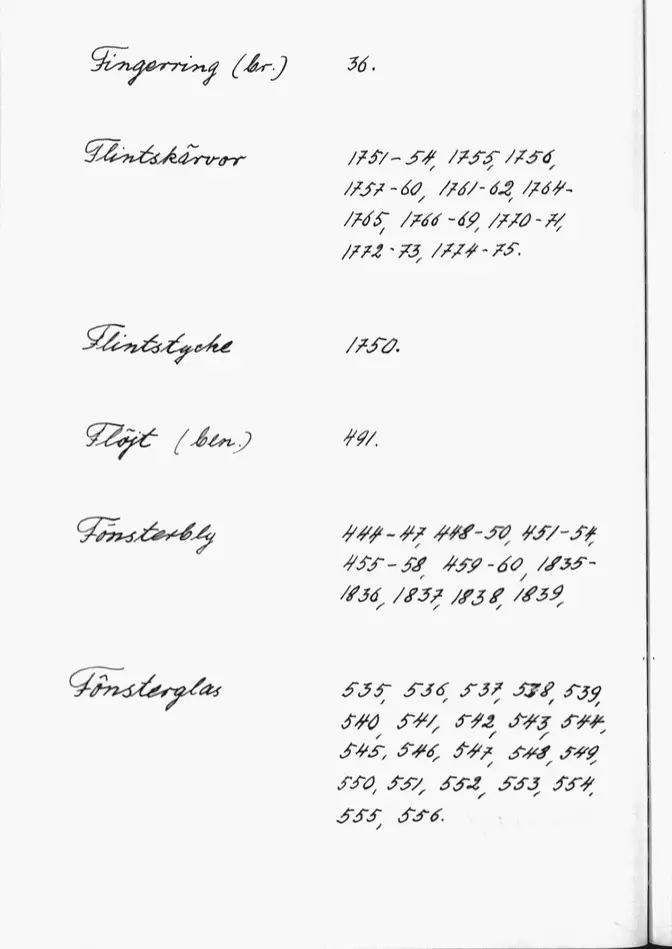 Fingerring (br.) 36.
Flintskärvor 1751-54, 1755, 1756,
1757-60, 1761-62, 1764-
1765, 1766-69, 1770-71,
1772-73, 1774-75.
Flintstycke 1750.
Flöjt (ben.) 491.
Fönsterbly 444-47, 448-50, 451-54,
455-58, 459-60, 1835-
1836, 1837, 1838, 1839,
Fönsterglas 535, 536, 537, 538, 539,
540, 541, 542, 543, 544,
545, 546, 547, 548, 549,
550, 551, 552, 553, 554,
555, 556.